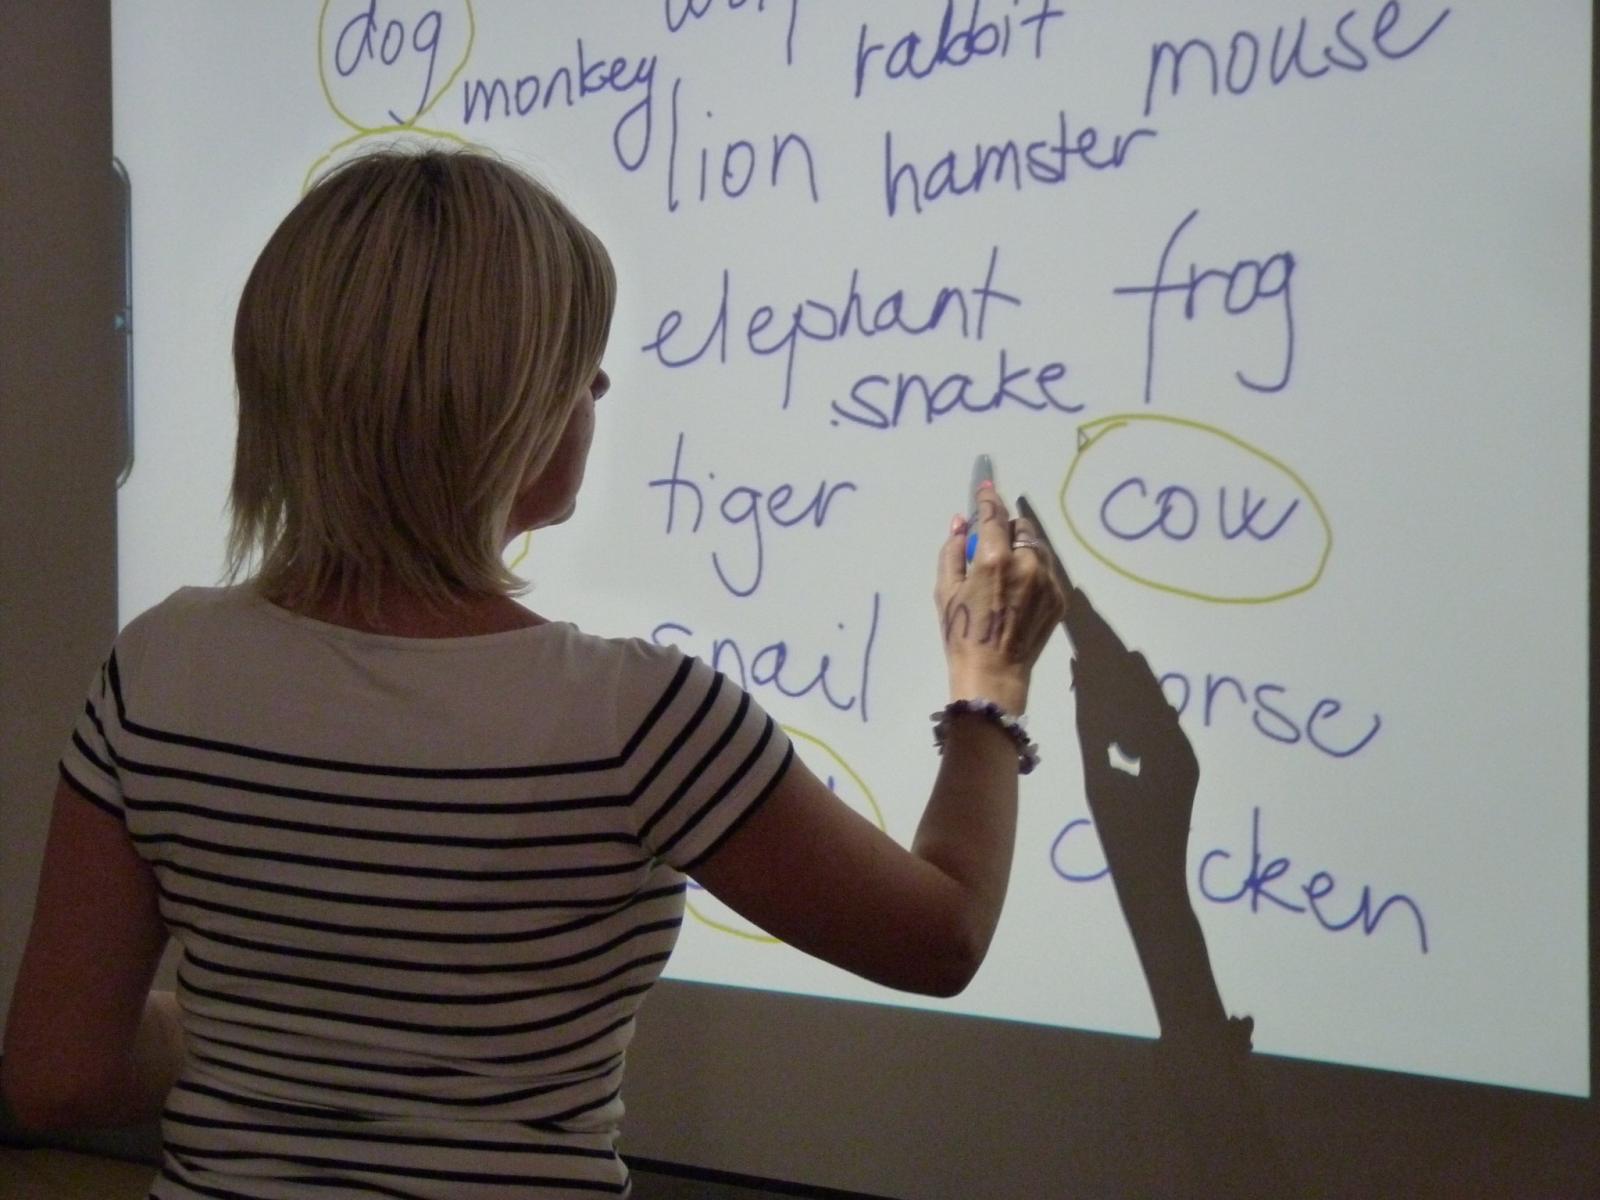 dog
monkey rabbit mouse
lion hamster
elephant frog
snake
tiger cow
snail